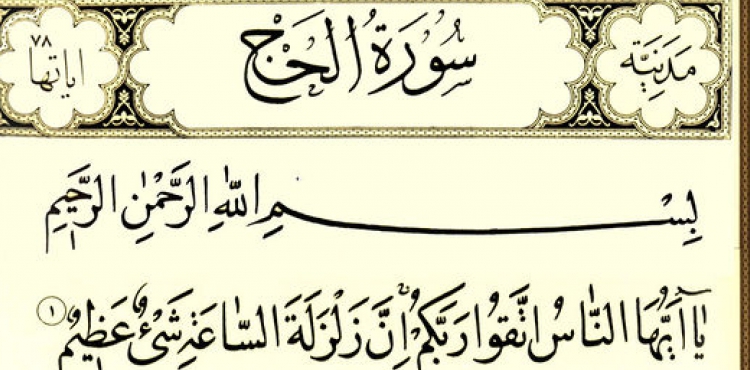 مَدَنِيَّةٌ
سُورَةُ الْحَجِّ
اياتها ٧٨
بِسْمِ اللّٰهِ الرَّحْمٰنِ الرَّحِيمِ
يَٓا اَيُّهَا النَّاسُ اتَّقُوا رَبَّكُمْۚ اِنَّ زَلْزَلَةَ السَّاعَةِ شَيْءٌ عَظِيمٌ ١